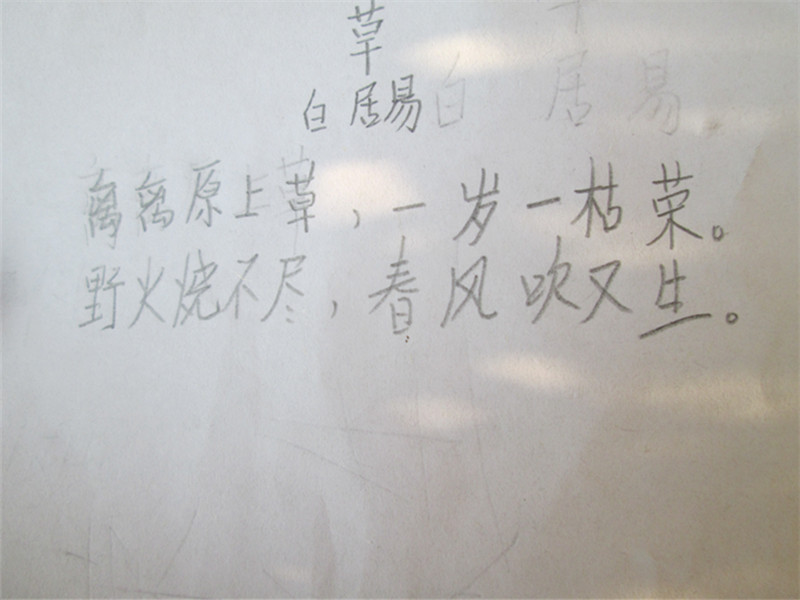 草
白居易
离离原上草，一岁一枯荣。
野火烧不尽，春风吹又生。